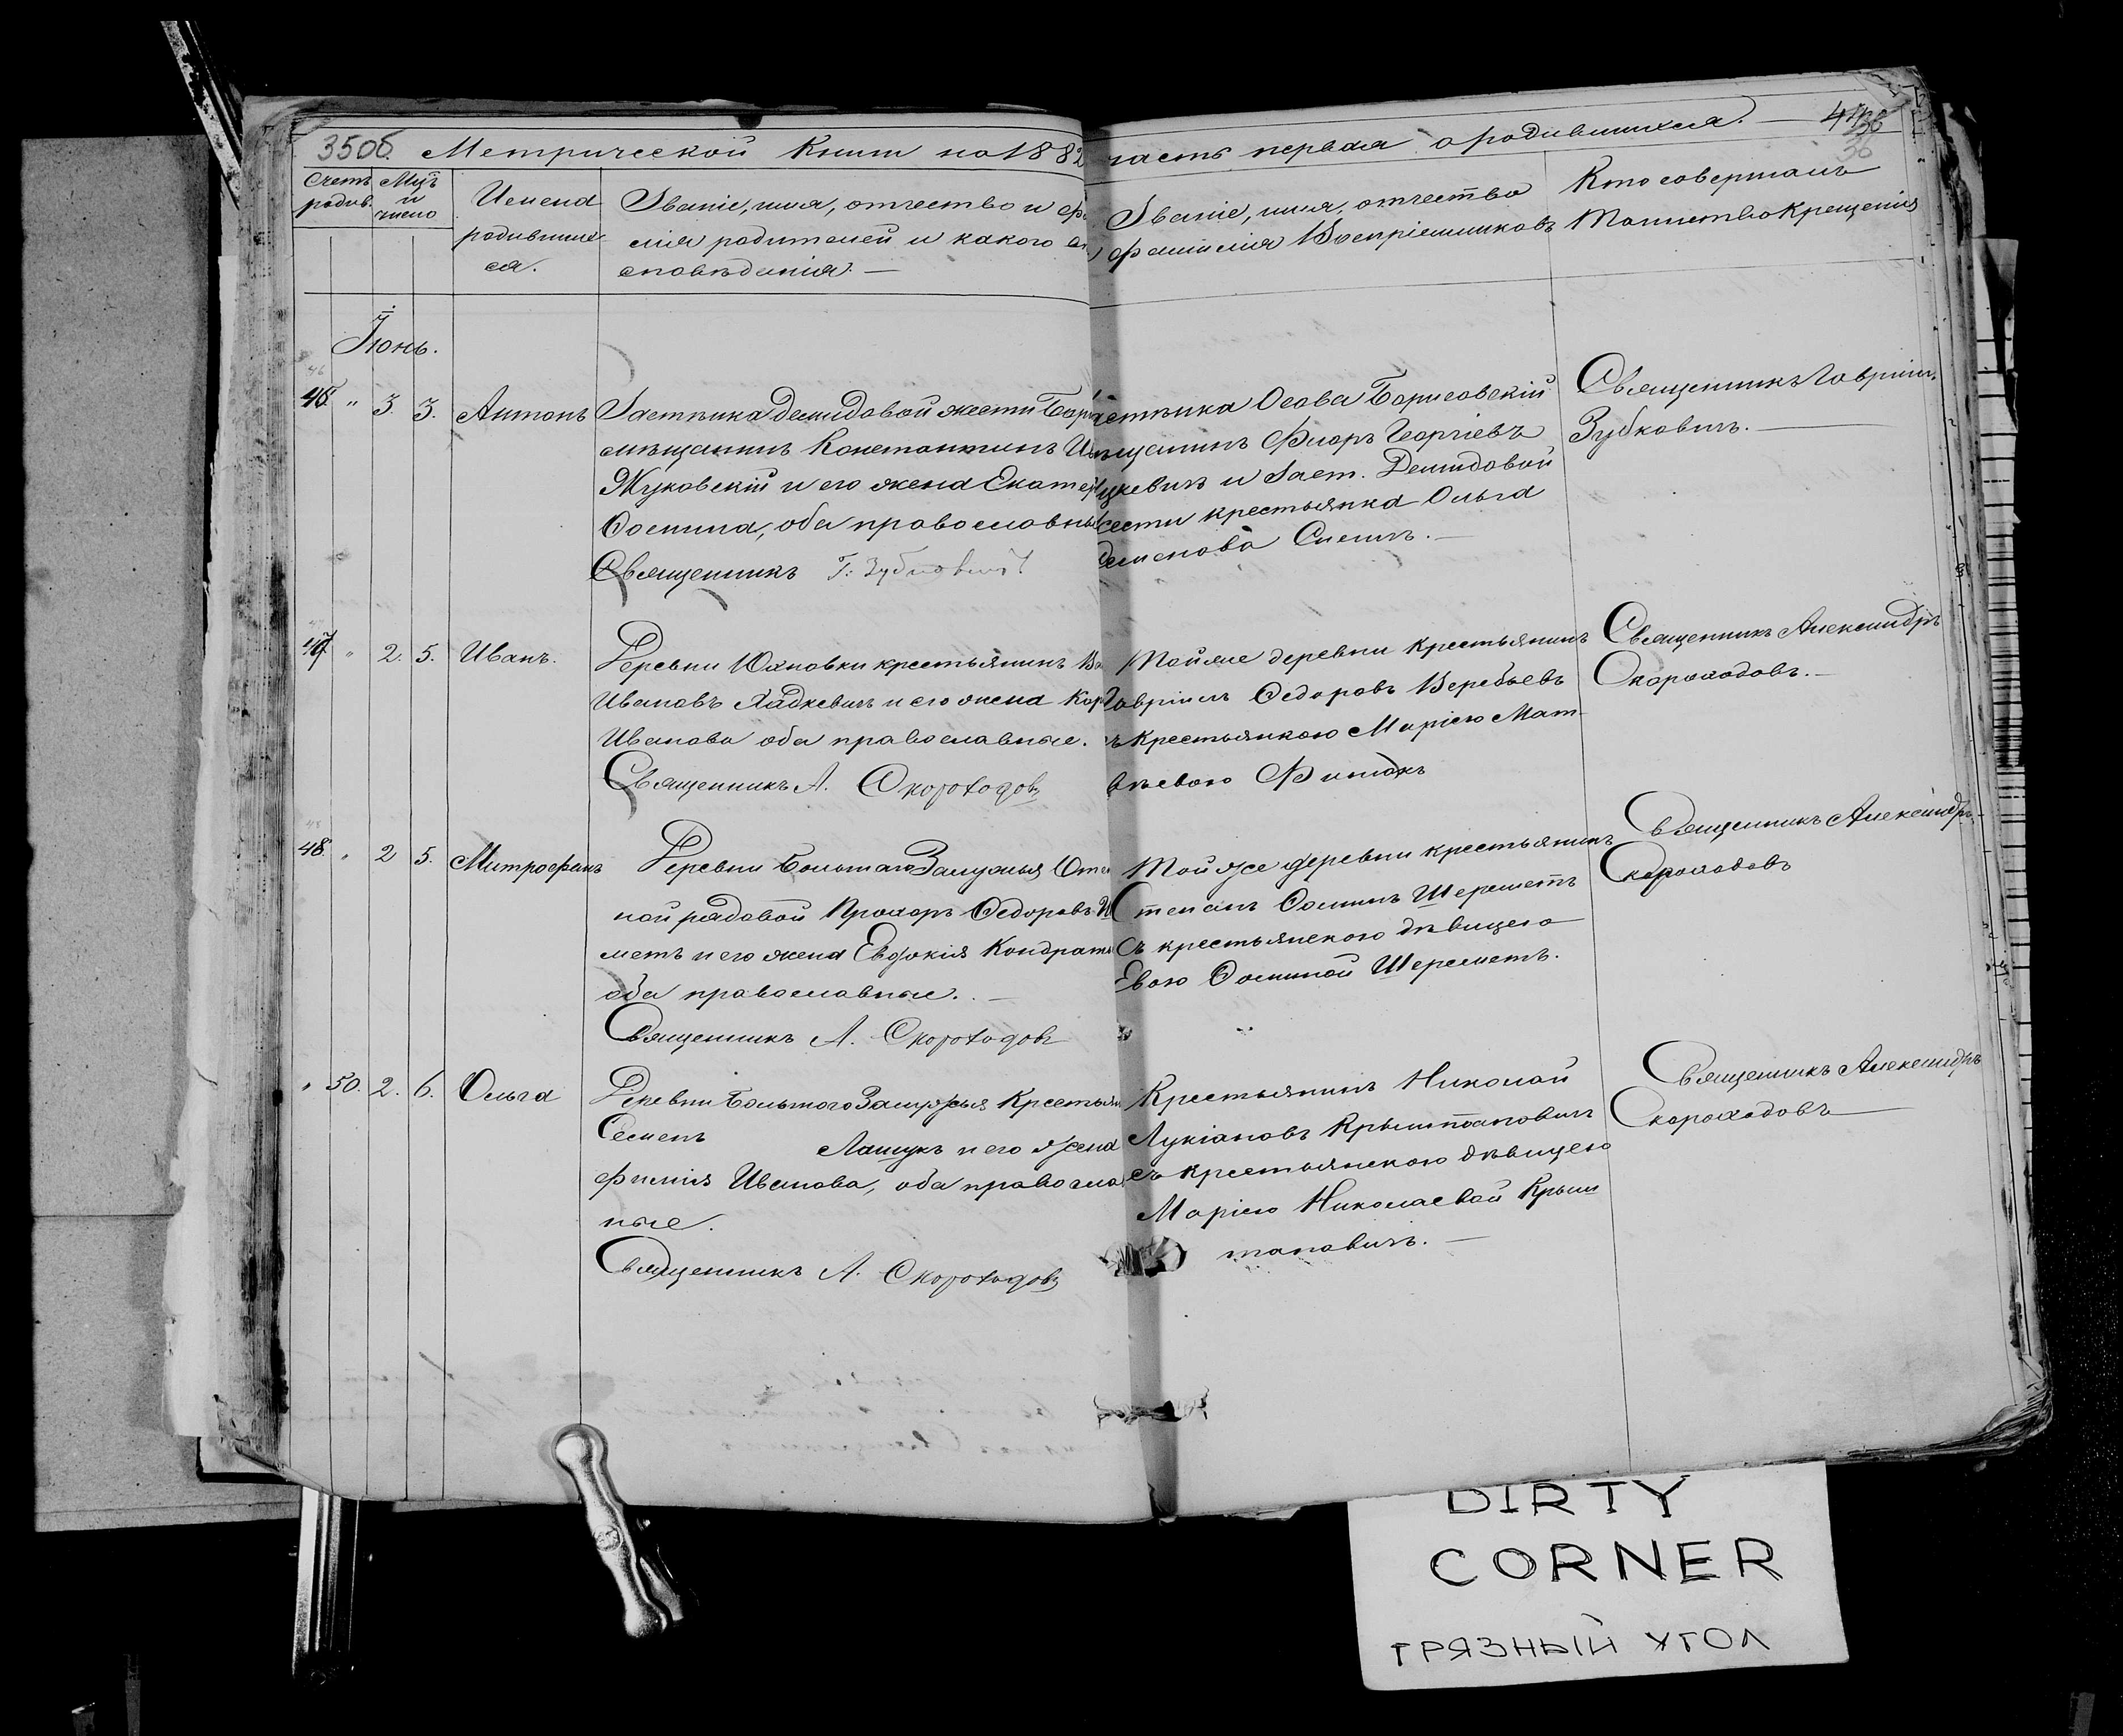 35об. Метрической Книги на 1882 часть первая о родившихся. —
36
Счетъ родив.
Мць и число
Имена родившихся.
Званіе, имя, отчество и фа
милія родителей и какого
сповѣданія. —
Званіе, имя, отчество
фамилія Воспріемниковъ
Кто совершалъ
Таинство Крещенія
Іюнь.
46. " 3. 3. Антонъ
Застѣнка Демидовой жести Бори
мѣщанинъ Константинъ
Жуковскій и его жена Екате
Ѳомина, оба православны
Священникъ Г. Зубковичъ
стѣнка Осова Борисовскій
щанинъ Флоръ Георгіевъ
цкевичъ и Заст. Демидовой
жести крестьянка Ольга
Семенова
Священникъ Гавріил
Зубковичъ. —
47 " 2. 5. Иванъ.
Деревни Юхновки крестьянинъ
Ивановъ Хадкевичъ и его жена
Иванова оба православные.
Священникъ А. Скороходовъ
Той же деревни крестьянинъ
Гавріилъ Ѳедоровъ Веребьевъ
съ крестьянкою Маріею Мат
вѣевою
Священникъ Александръ
Скороходовъ. —
48. " 2 5. Митрофанъ
Деревни Большаго Залужья
ной рядовой Прохоръ Ѳедоровъ
меть и его жена Евдокія Кондрать
оба православные. —
Священникъ А. Скороходовъ
Той же деревни крестьянинъ
Степанъ Ѳоминъ Шереметь
съ крестьянскою дѣвицею
Евою Ѳоминой Шереметь.
Священникъ Александръ
Скороходовъ
" 50. 2. 6. Ольга
Деревни Большого Залужья Крестьян
Семенъ Лашукъ и его жена
фимія Иванова, оба правосла
ные.
Священникъ А. Скороходовъ
Крестьянинъ Николай
Лукіановъ Крыштановичъ
съ крестьянскою дѣвицею
Маріею Николаевой Крыш
тановичъ. —
Священникъ Александръ
Скороходовъ —
DIRTY
CORNER
ГРЯЗНЫЙ УГОЛ